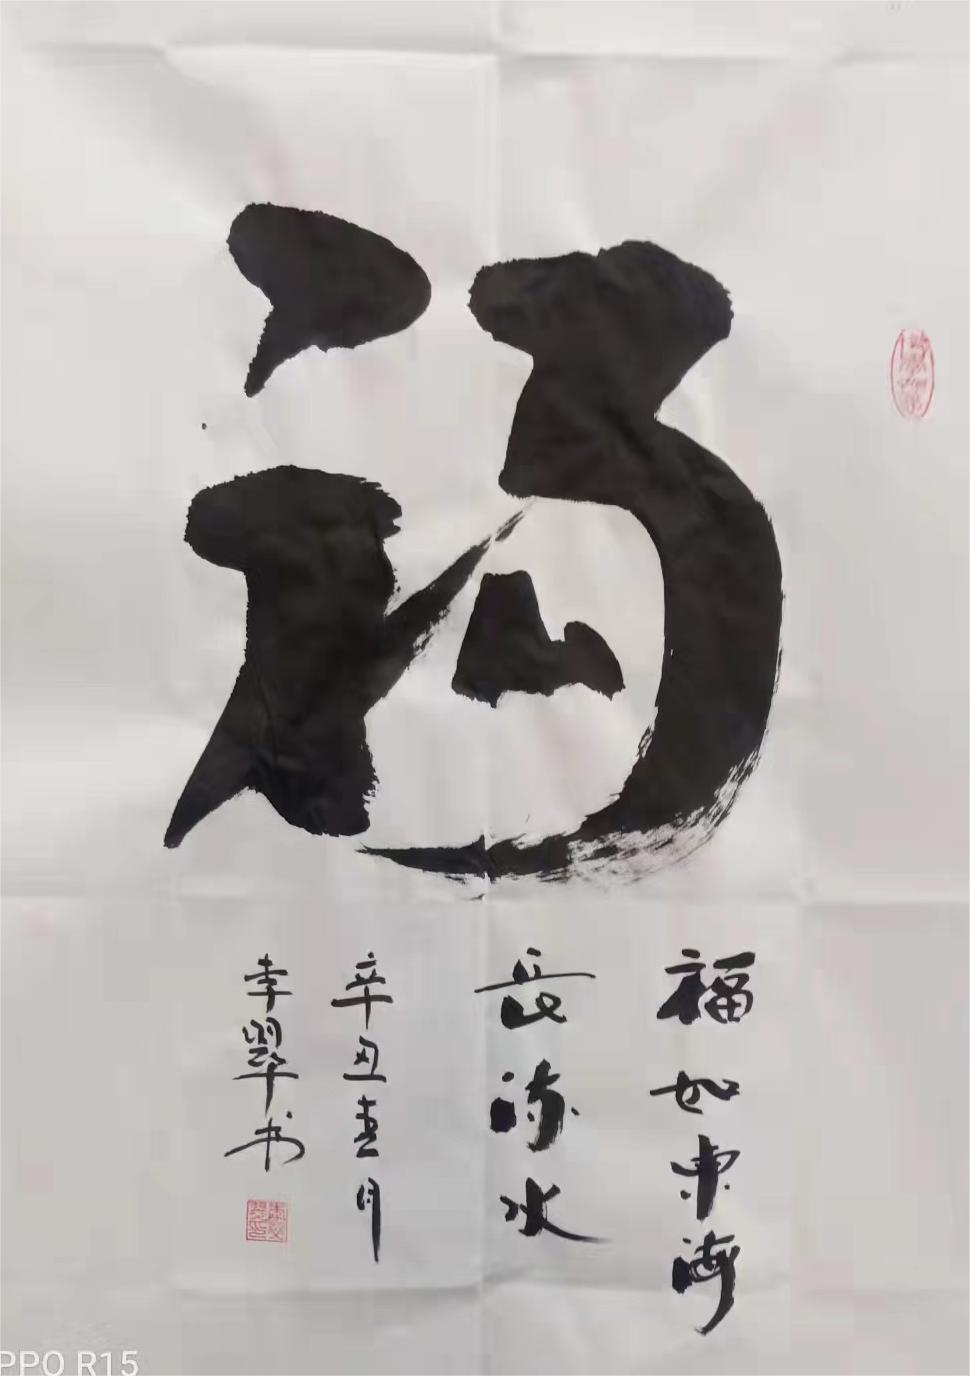 福
福如东海
长流水
辛丑春月
李翠书
PPO R15